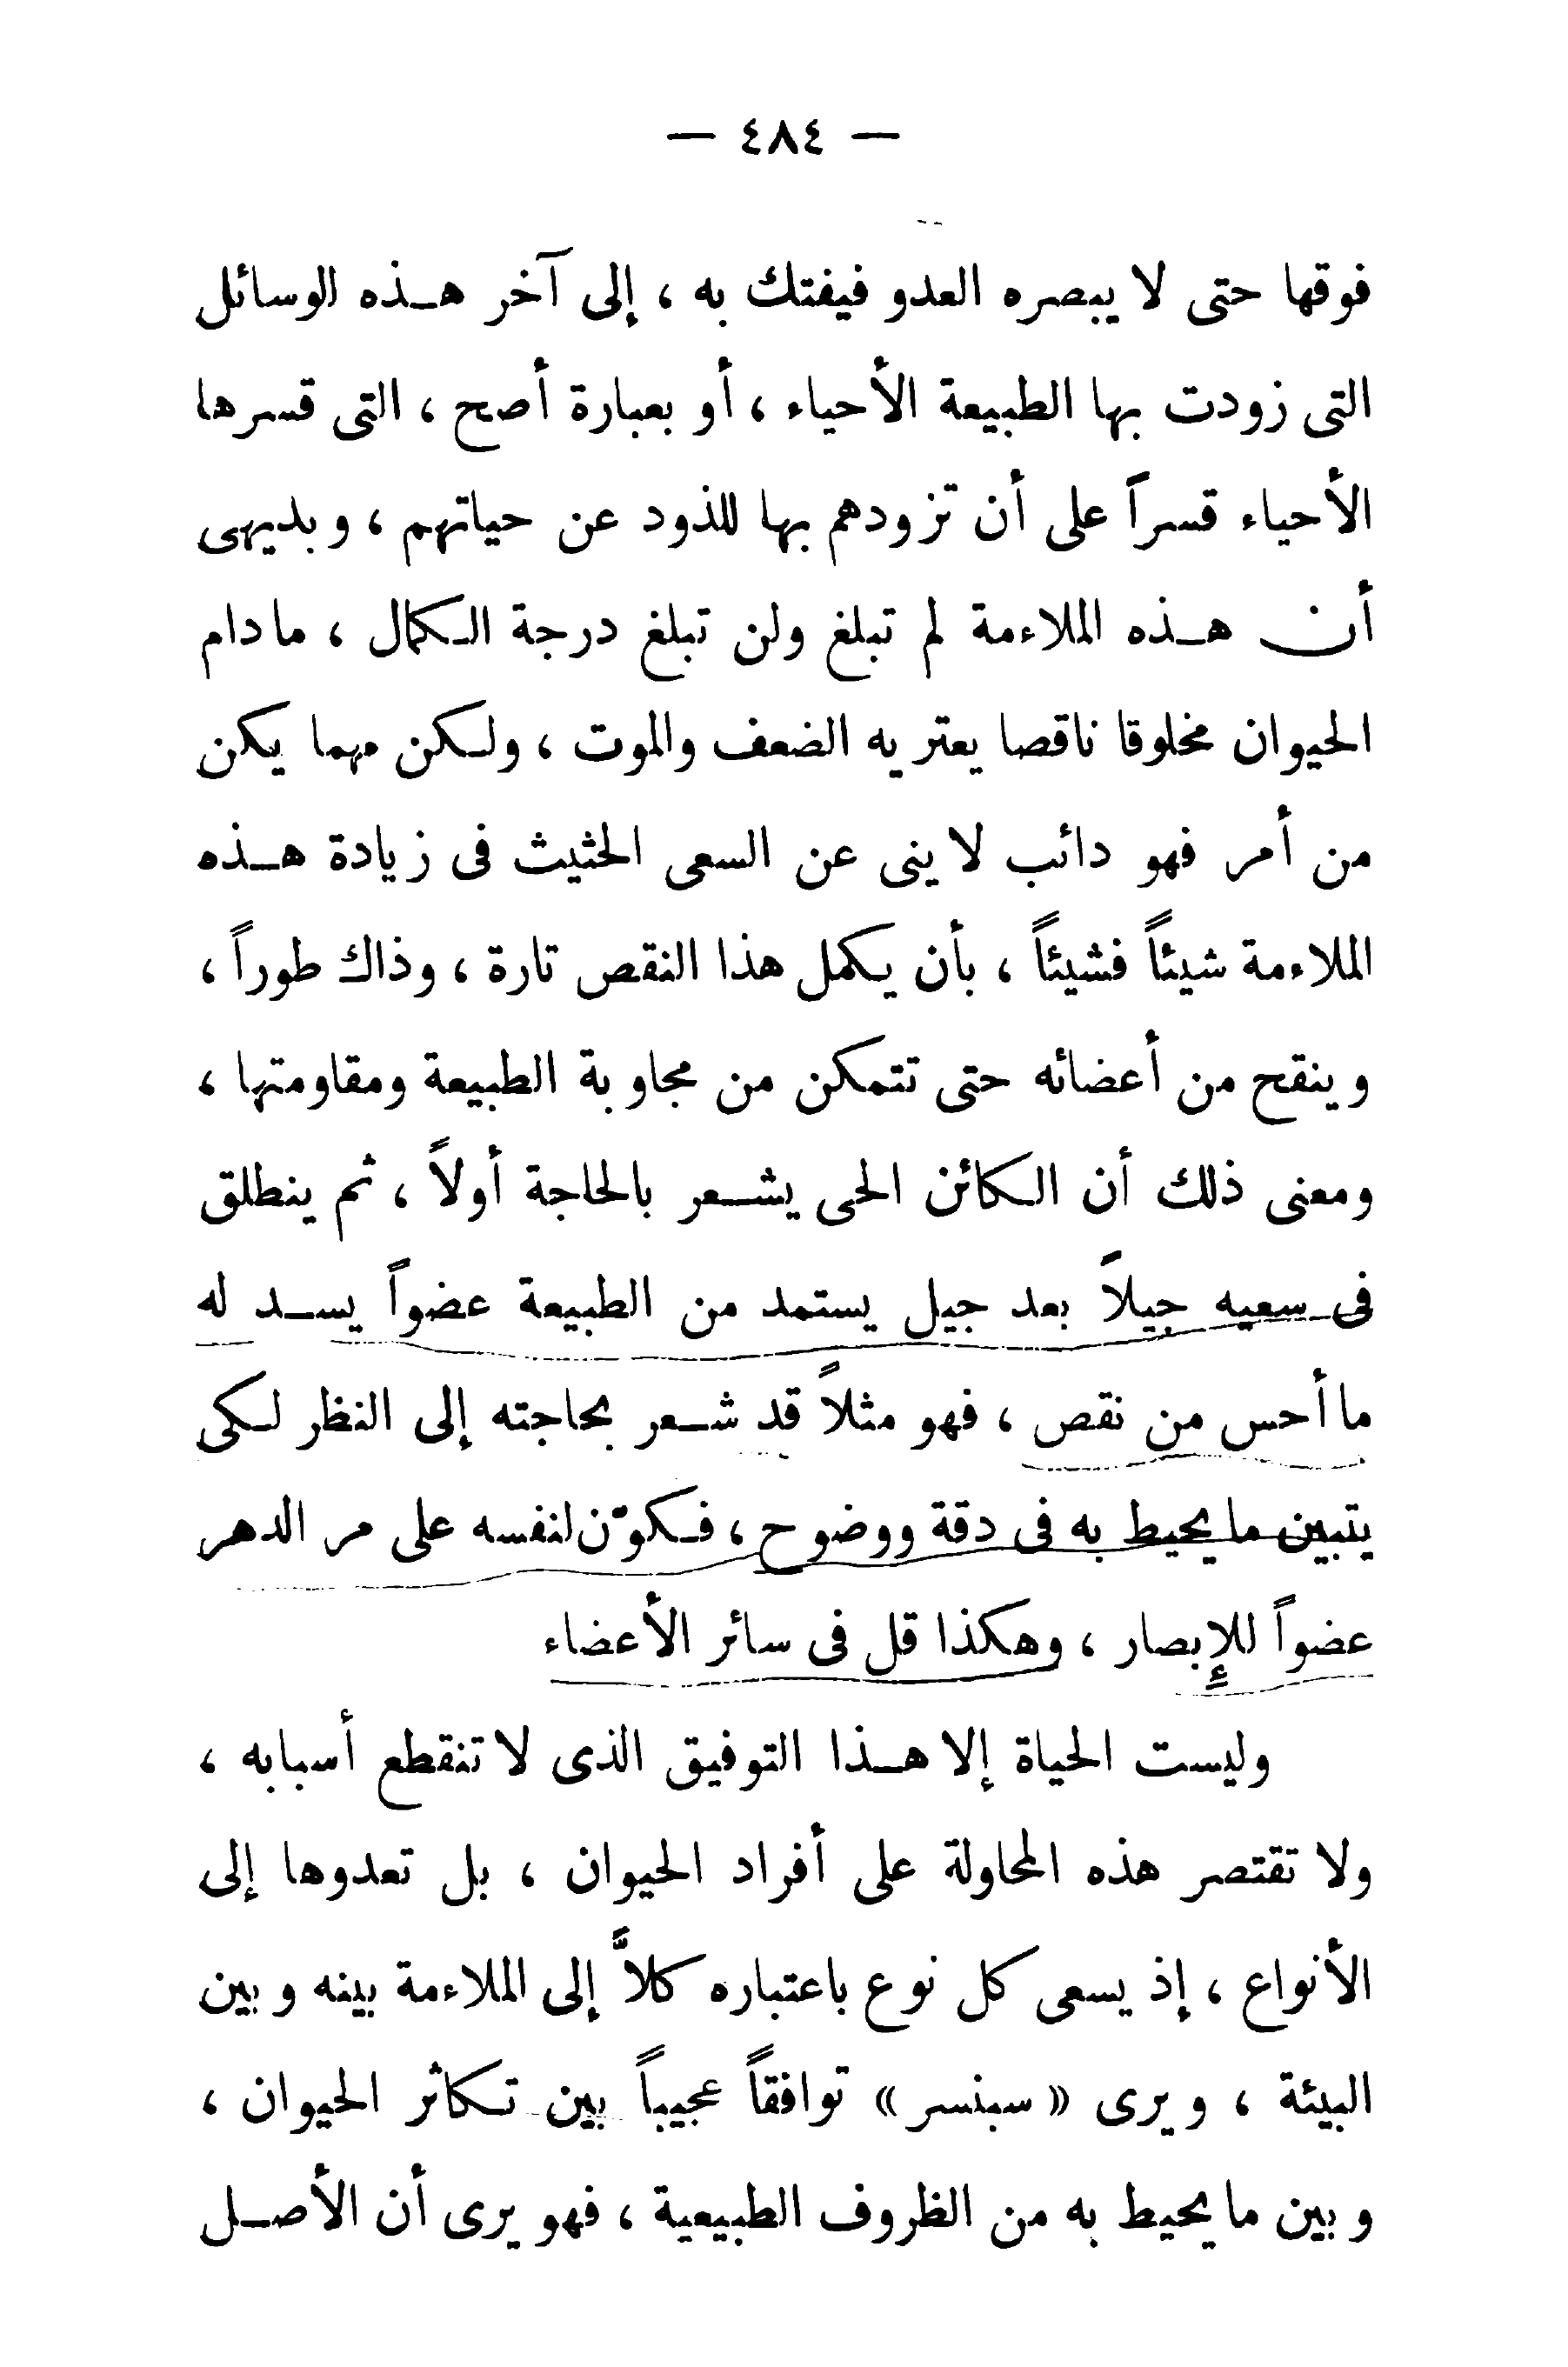 — ٤٨٤ —
فوقها حتى لا يبصره العدو فيفتك به ، إلى آخر هـذه الوسائل
التى زودت بها الطبيعة الأحياء ، أو بعبارة أصح ، التى قسرها
الأحياء قسراً على أن تزودهم بها للذود عن حياتهم ، وبديهى
أن هـذه الملاءمة لم تبلغ ولن تبلغ درجة الـكمال ، مادام
الحيوان مخلوقا ناقصا يعتريه الضعف والموت ، ولـكن مهما يكن
من أمر فهو دائب لا ينى عن السعى الحثيث فى زيادة هـذه
الملاءمة شيئاً فشيئاً ، بأن يـكمل هذا النقص تارة ، وذاك طوراً ،
وينقح من أعضائه حتى تتمكن من مجاوبة الطبيعة ومقاومتها ،
ومعنى ذلك أن الـكائن الحى يشـعر بالحاجة أولاً ، ثم ينطلق
فى سعيه جيلاً بعد جيل يستمد من الطبيعة عضواً يسـد له
ما أحس من نقص ، فهو مثلاً قد شـعر بحاجته إلى النظر لـكى
يتبين ما يحيط به فى دقة ووضوح ، فـكوّن لنفسه على مر الدهر
عضواً للإبصار ، وهكذا قل فى سائر الأعضاء
وليست الحياة إلا هـذا التوفيق الذى لا تنقطع أسبابه ،
ولا تقتصر هذه المحاولة على أفراد الحيوان ، بل تعدوها إلى
الأنواع ، إذ يسعى كل نوع باعتباره كلاًّ إلى الملاءمة بينه وبين
البيئة ، ويرى « سبنسر » توافقاً عجيباً بين تـكاثر الحيوان ،
وبين ما يحيط به من الظروف الطبيعية ، فهو يرى أن الأصـل